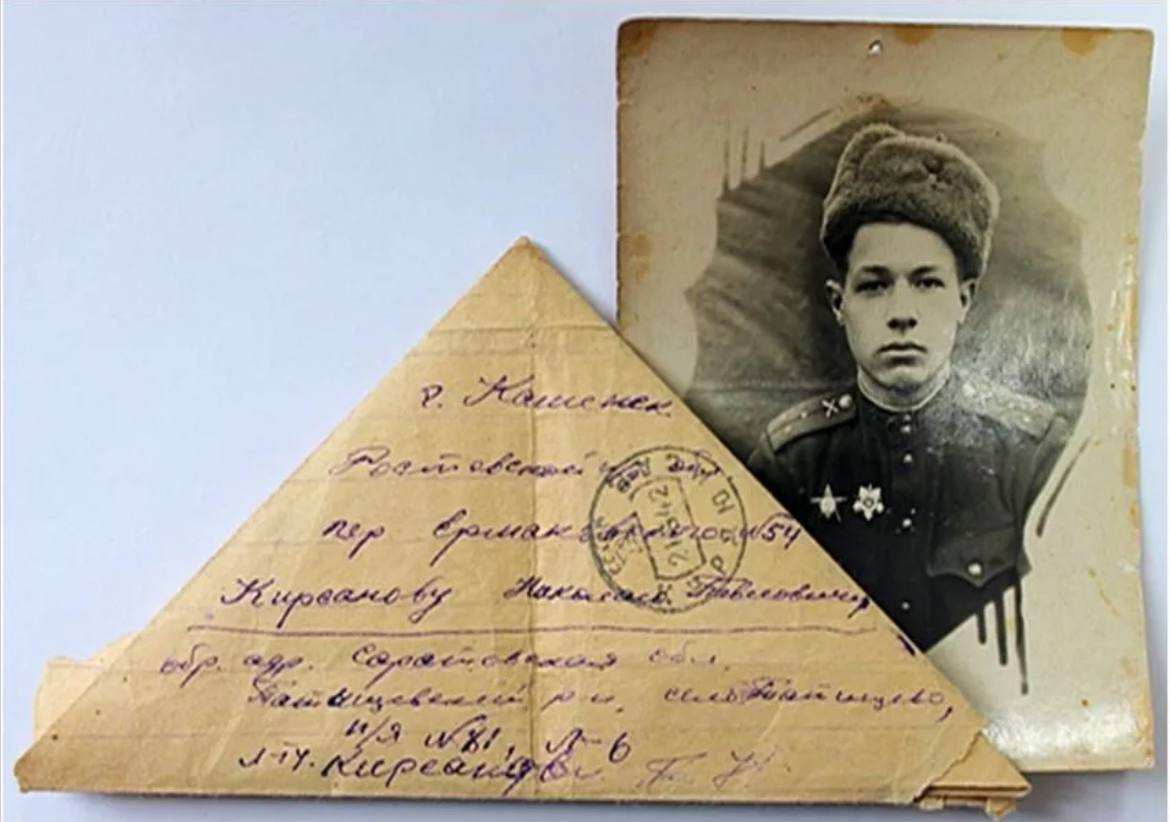 г. Каменск
Ростовской
пер Ермаковского №54
Кирсанову Николаю Павловичу
обр. адр. Саратовская обл.
Татищевский р-н, село Татищево,
п/я №81, Л-6
Л-т. Кирсанов П. Н.
21 42